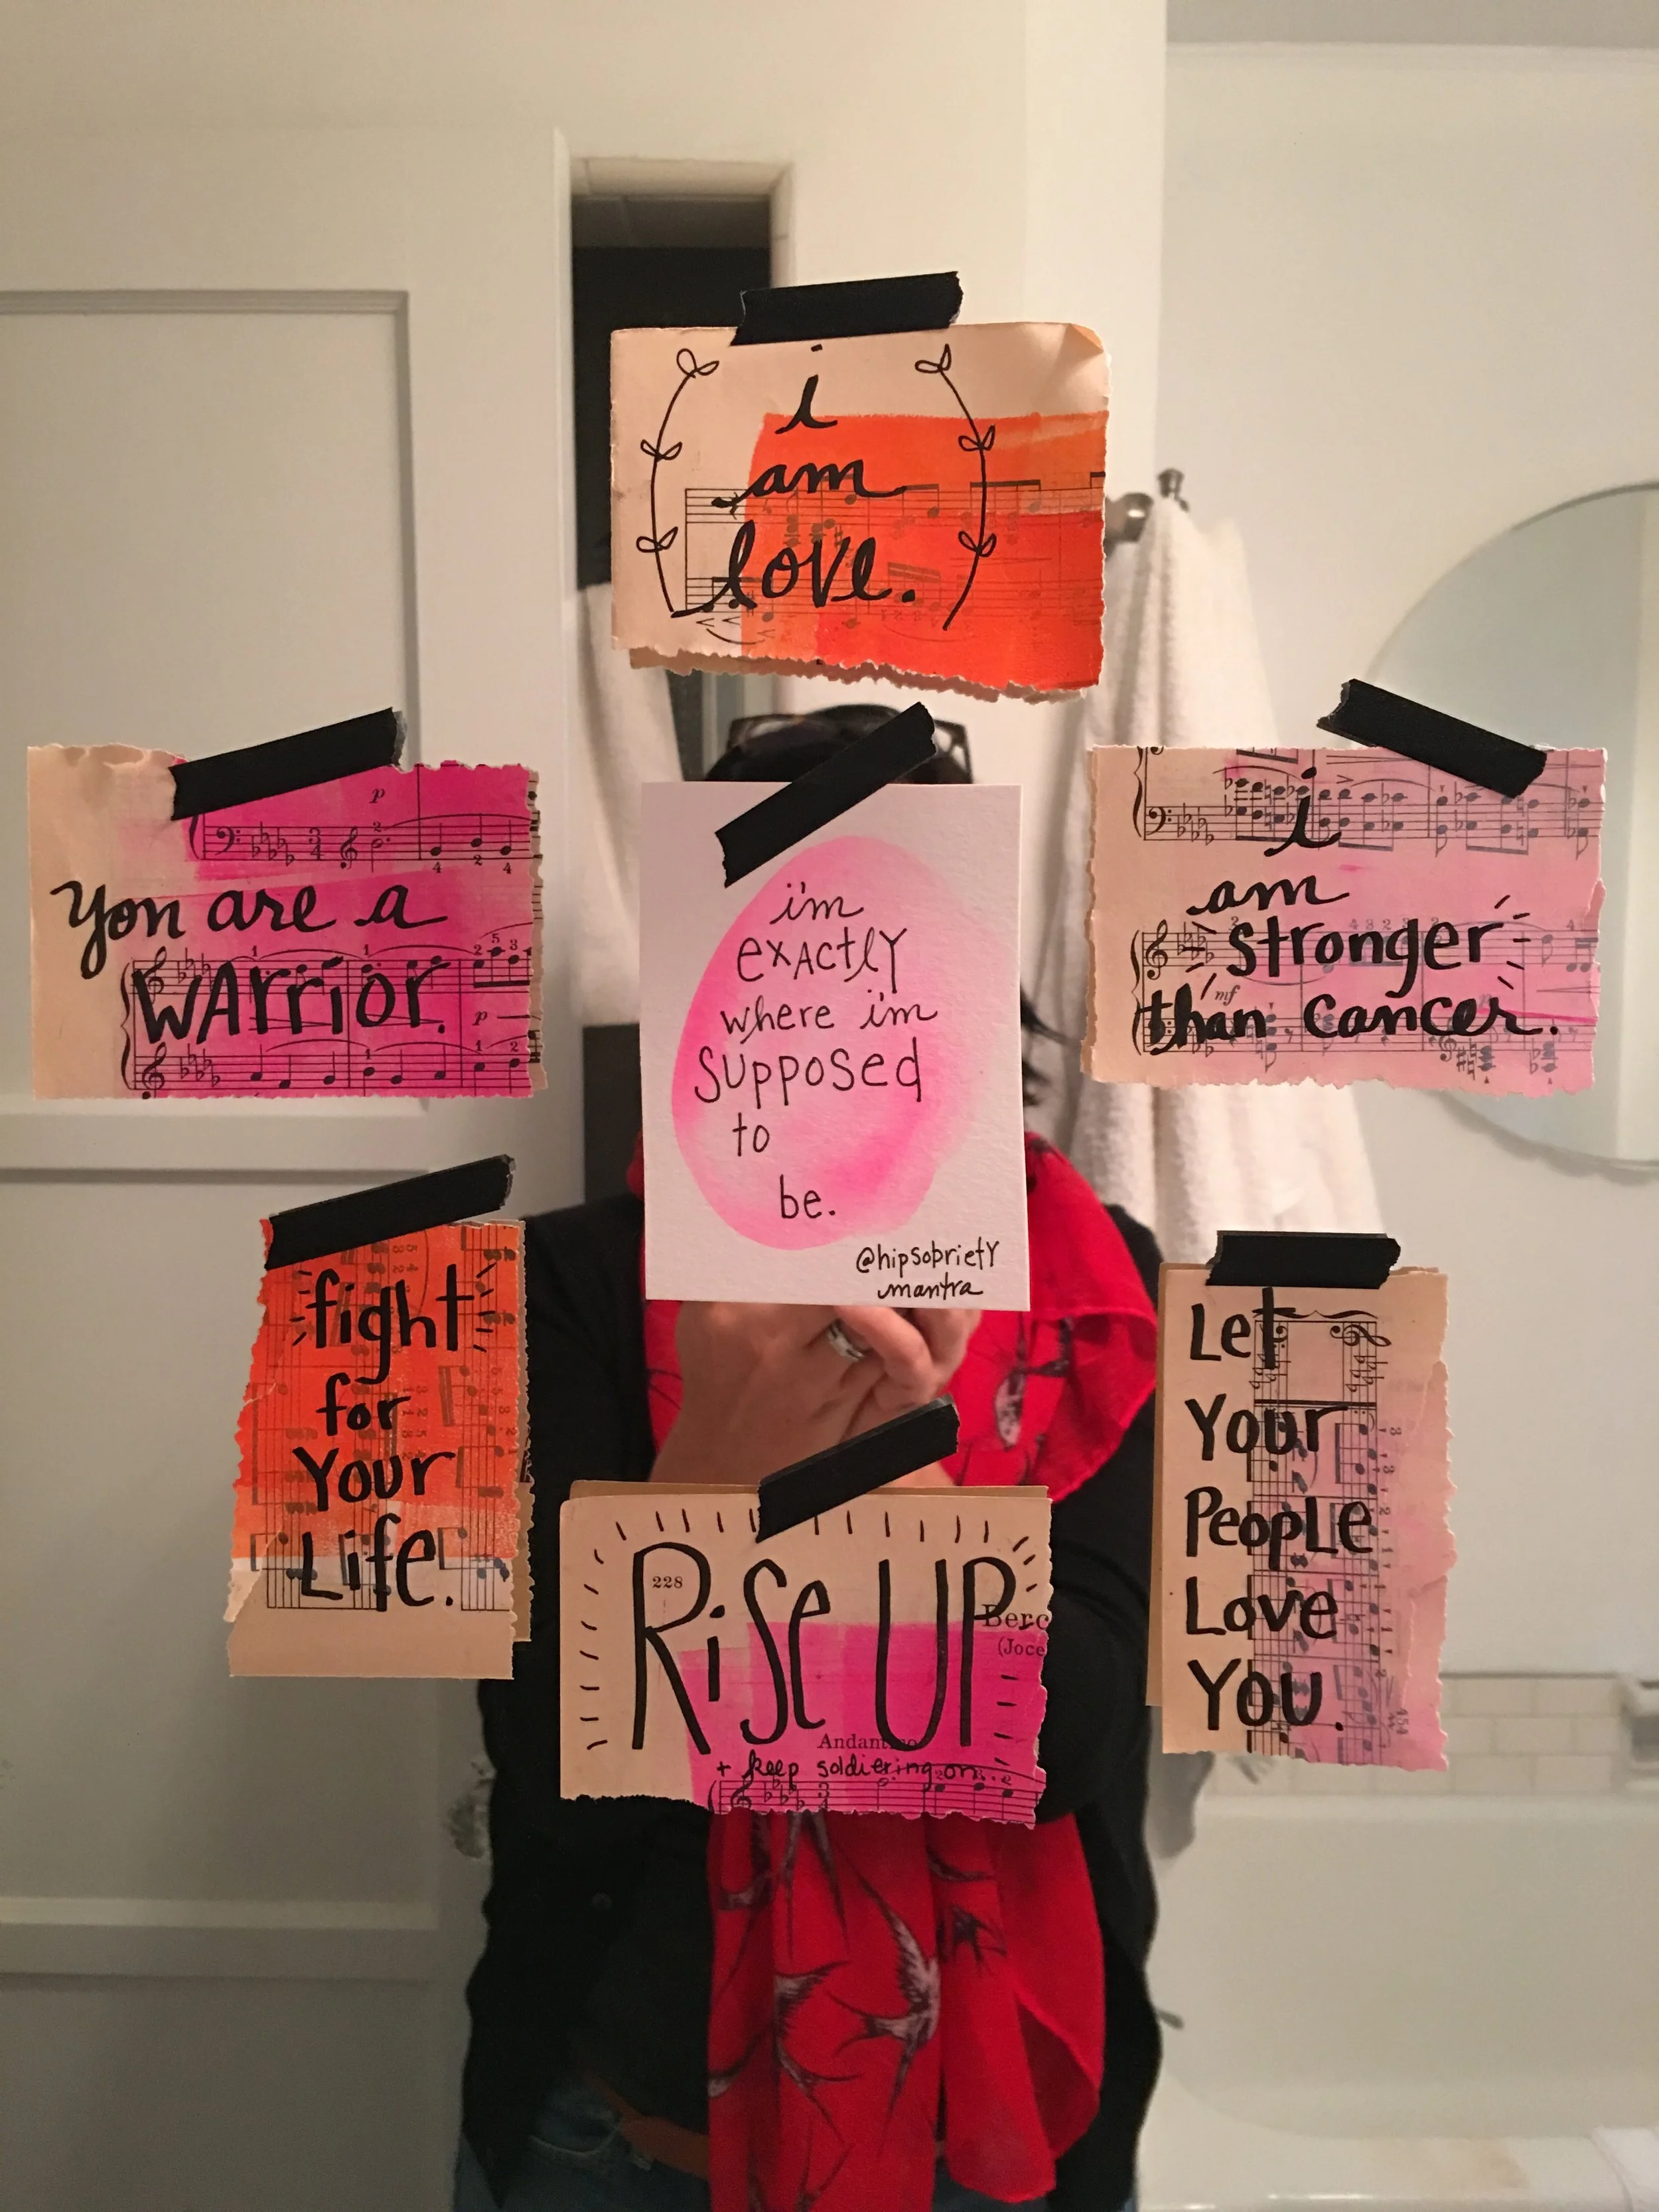 i
am
love.
You are a
WArrior.
i'm
exActlY
where i'm
supposed
to
be.
@hipsobrietY
mantra
i
am
stronger
than cancer.
fight
for
Your
Life.
Let
Your
PeopLe
Love
You.
228
RiSe UP
Berc
(Joce
Andantino
+ keep soldiering on.
p
p
mf